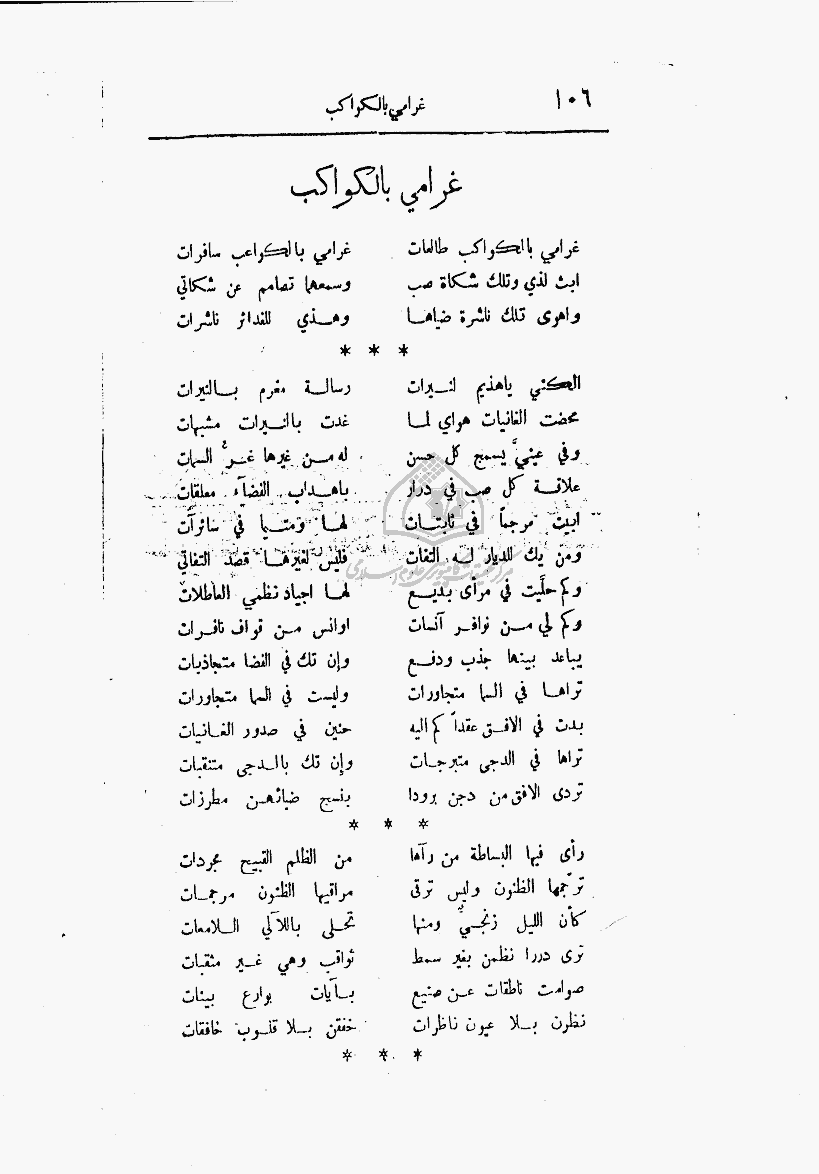 ١٠٦ غرامي بالكواكب
غرامي بالكواكب
غرامي بالكواكب طالعات غرامي بالكواعب سافرات
ابث لذي وتلك شكاة صب وسمعها تصامم عن شكاتي
واهوى تلك ناشرة ضياها وهذي للغدائر ناشرات
* * *
الكني ياهذيم لنيرات رسالة مغرم بالنيرات
محضت الغانيات هواي لما غدت بالنيرات مشبهات
وفي عينيَّ يسمج كل حسن له من غيرها غرُّ السمات
علاقة كل صب في درار باهداب الفضآء معلقات
ابيت مرجماً في ثابتات لها ومتيما في سائرآت
ومن يك للديار له التفات فليس لغيرها قصد التفاتي
وكم حلَّيت في مرأى بديع لها اجياد نظمي العاطلات
وكم لي من نوافر آنسات اوانس من قواف نافرات
يباعد بينها جذب ودفع وإن تك في الفضا متجاذبات
تراها في السما متجاورات وليست في السما متجاورات
بدت في الافق عقداً كم اليه حنين في صدور الغانيات
تراها في الدجى متبرجات وإن تك بالدجى متنقبات
تردى الافق من دجن برودا بنسج ضيائهن مطرزات
* * *
رأى فيها البساطة من رآها من الظلم القبيح مجردات
ترجمها الظنون وليس ترقى مراقيها الظنون مرجمات
كأن الليل زنجيٌّ ومنها تحلى باللآلي اللامعات
ترى دررا نظمن بغير سمط ثواقب وهي غير مثقبات
صوامت ناطقات عن صنيع بآيات بوارع بينات
نظرن بلا عيون ناظرات خفقن بلا قلوب خافقات
* * *